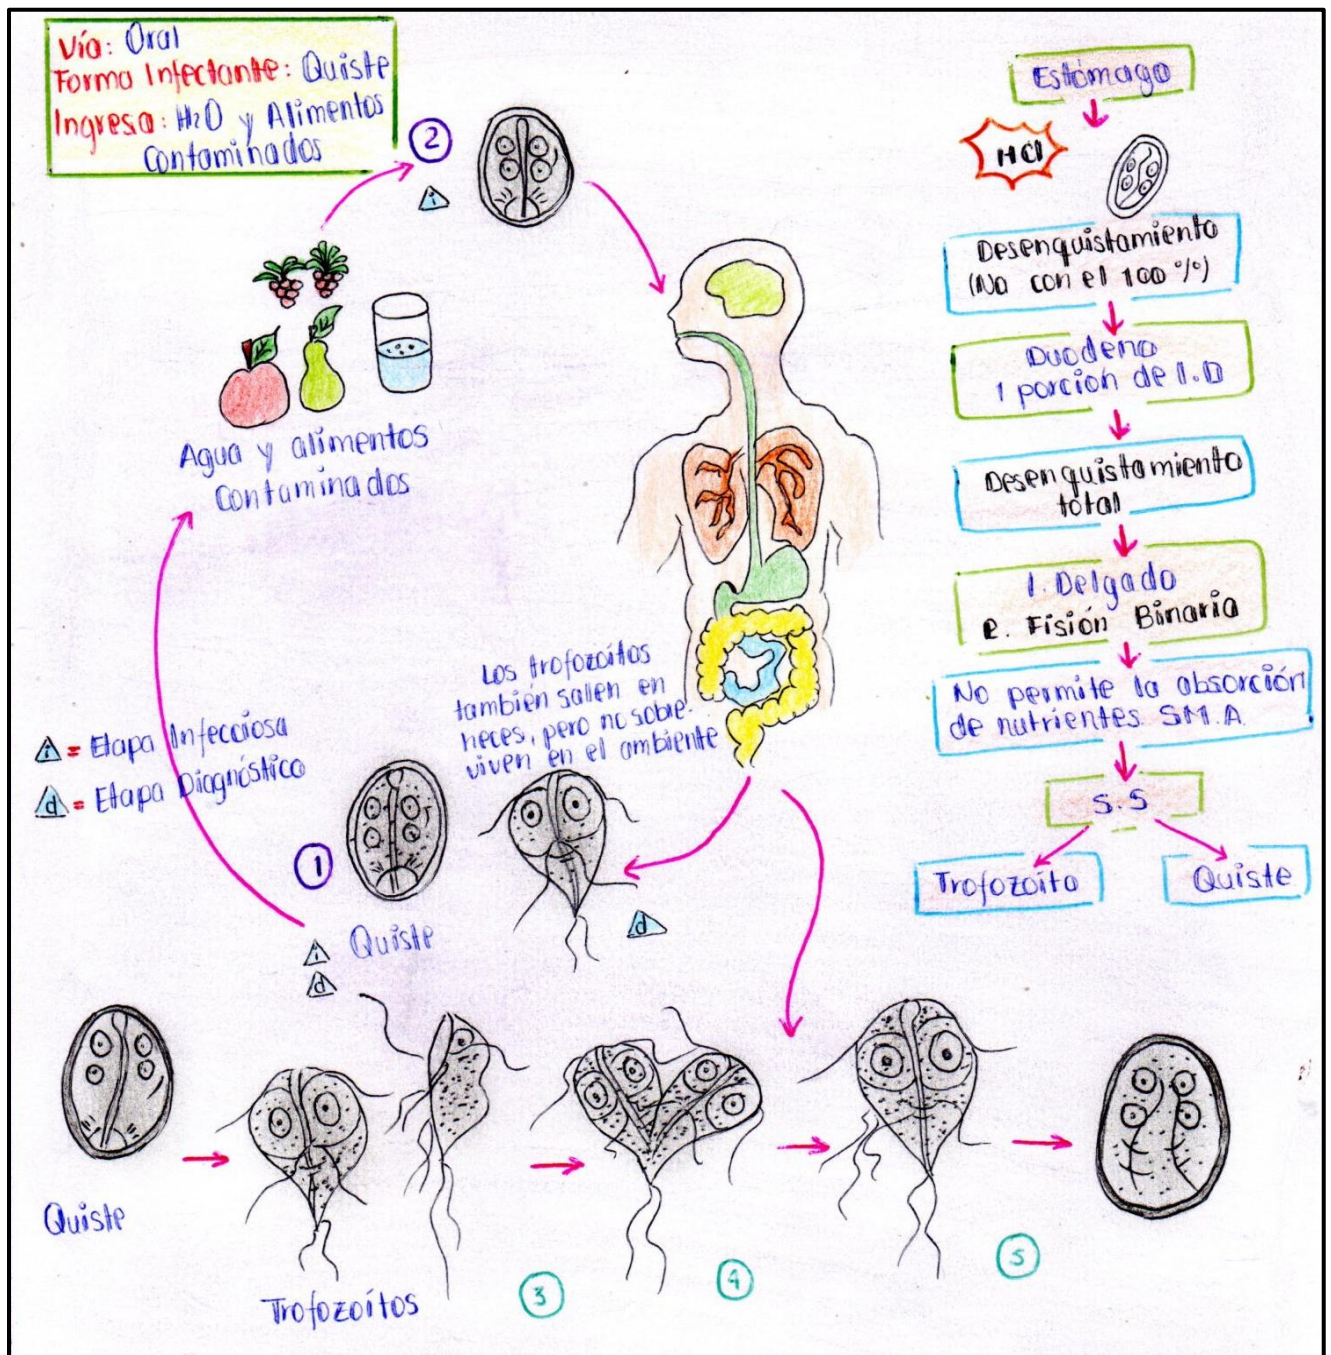 Vía: Oral
Forma Infectante: Quiste
Ingresa: H2O y Alimentos
Contaminados
2
i
Agua y alimentos
Contaminados
i = Etapa Infecciosa
d = Etapa Diagnóstico
Los trofozoítos
también salen en
heces, pero no sobre-
viven en el ambiente
1
i Quiste
d
d
Estómago
HCl
Desenquistamiento
(No con el 100%)
Duodeno
1 porción de I.D
Desenquistamiento
total
I. Delgado
R. Fisión Binaria
No permite la absorción
de nutrientes S.M.A
S.S
Trofozoíto
Quiste
Quiste
Trofozoítos
3
4
5